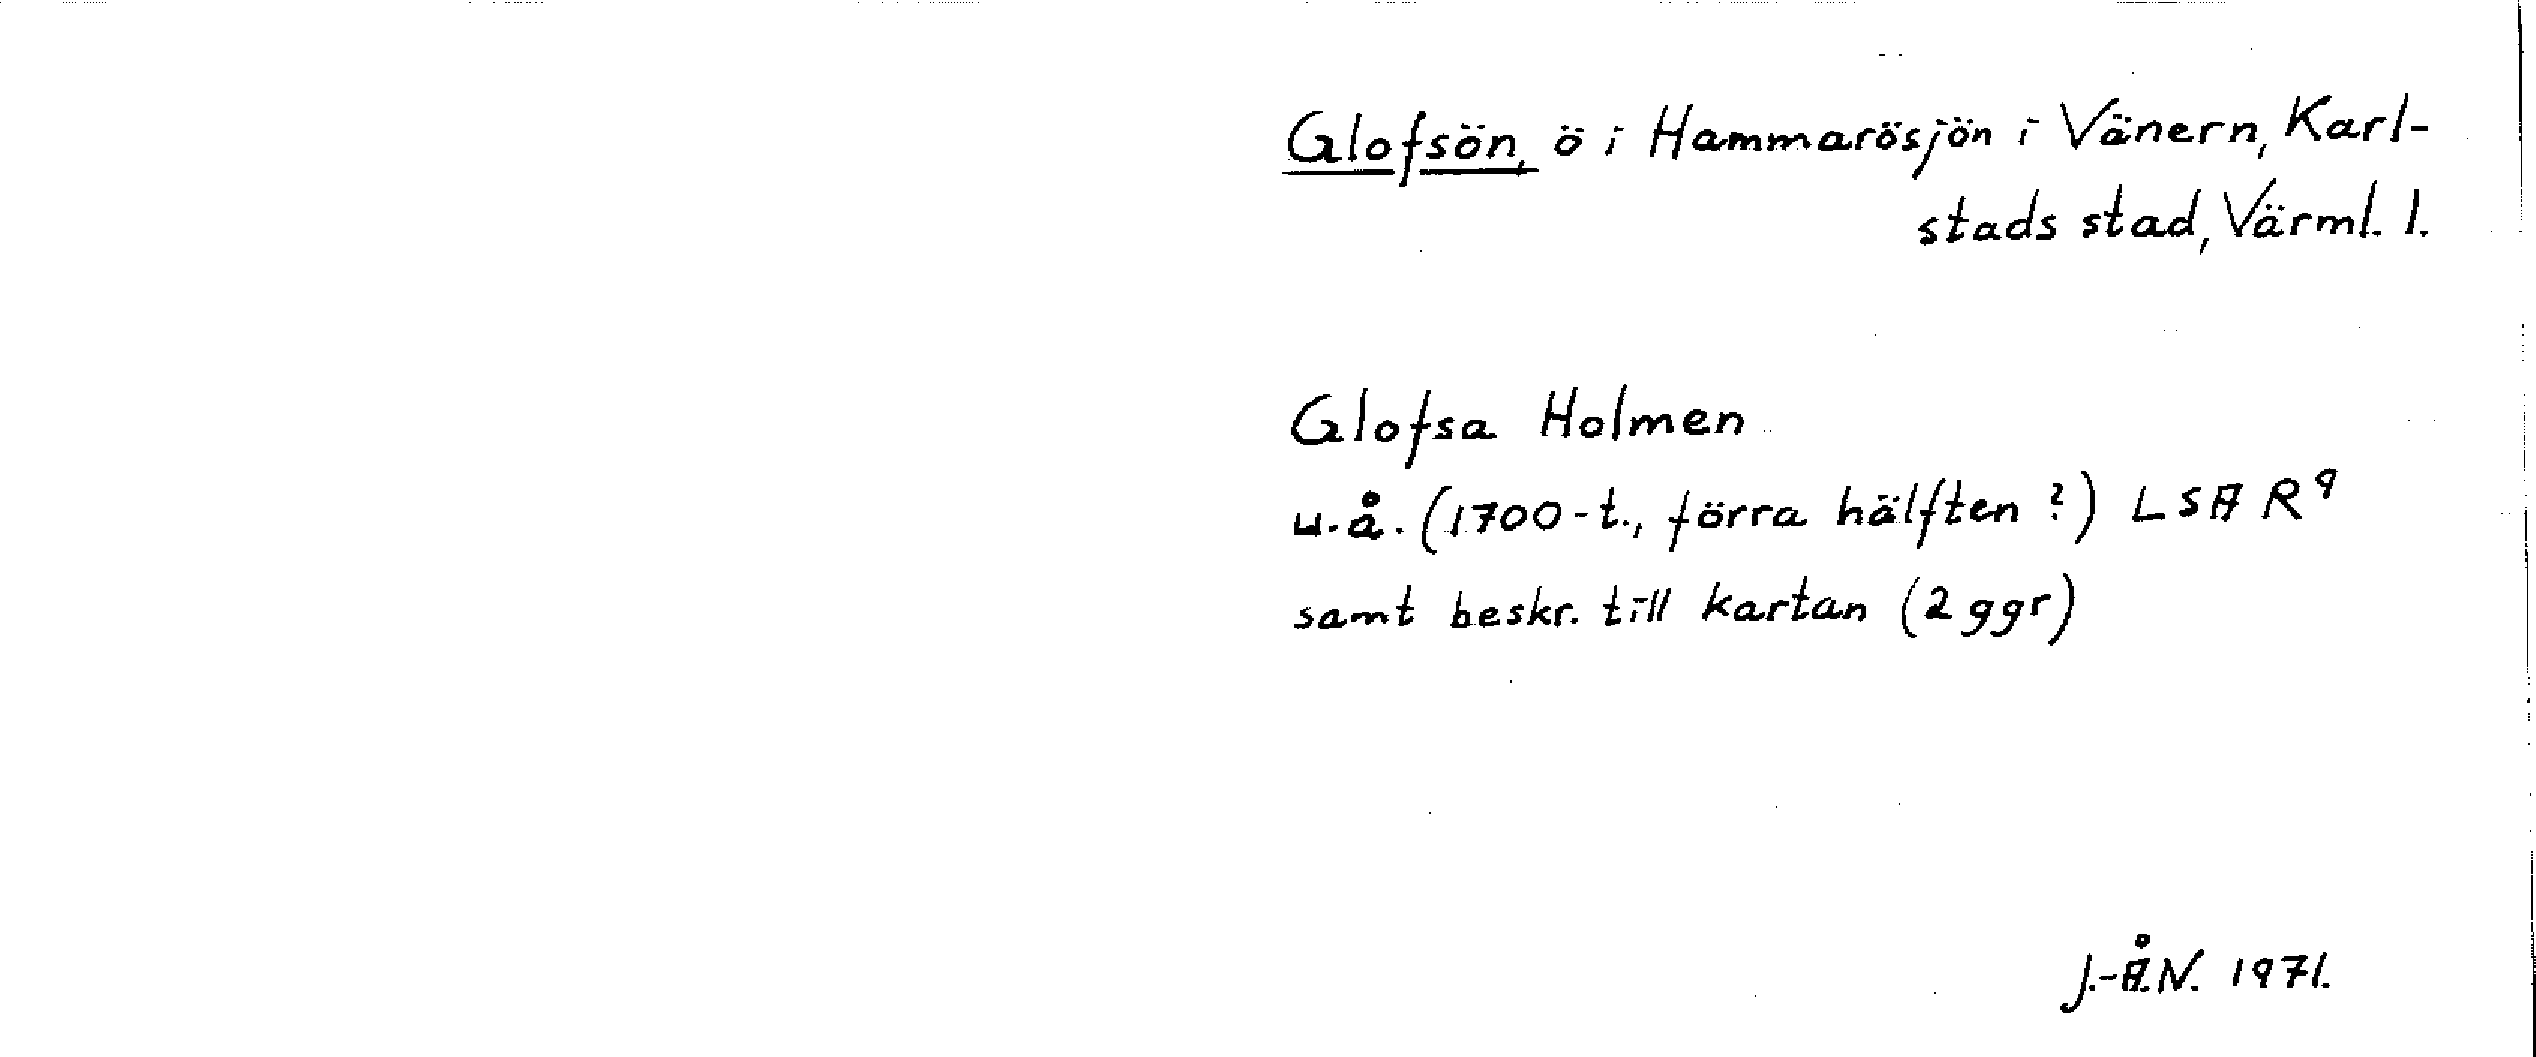 Glofsön, ö i Hammarösjön i Vänern, Karl-
stads stad, Värml. l.
Glofsa Holmen
u.å. (1700-t., förra hälften?) LSA R⁹
samt beskr. till kartan (2 ggr)
J.-Å.N. 1971.